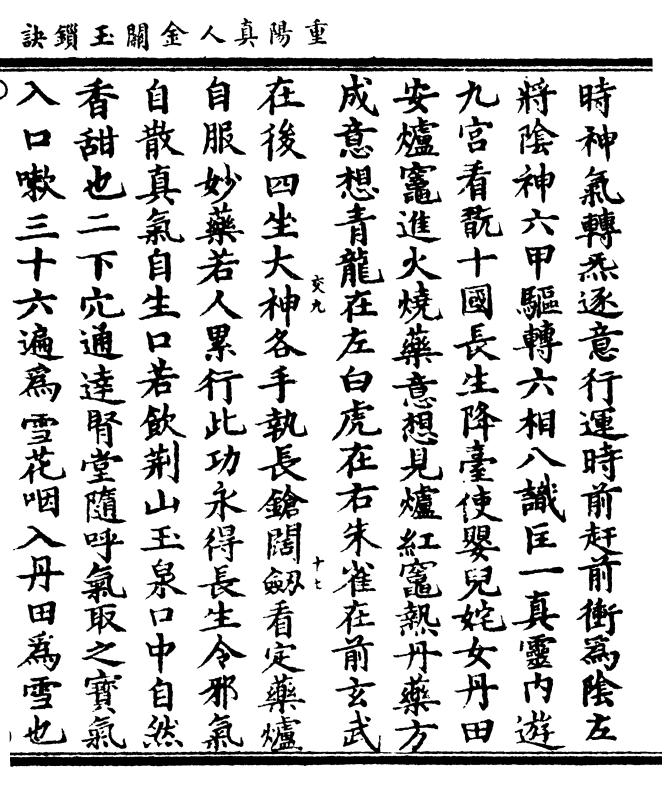 重陽真人金關玉鎖訣
時神氣轉炁逐意行運時前赶前衝為陰左
將陰神六甲驅轉六相八識匡一真靈內遊
九宮看翫十國長生降臺使嬰兒姹女丹田
安爐竈進火燒藥意想見爐紅竈熱丹藥方
成意想青龍在左白虎在右朱雀在前玄武
交九
十七
在後四坐大神各手執長鎗闊劔看定藥爐
自服妙藥若人累行此功永得長生令邪氣
自散真氣自生口若飲荆山玉泉口中自然
香甜也二下穴通達腎堂隨呼氣取之寶氣
入口嗽三十六遍為雪花咽入丹田為雪也